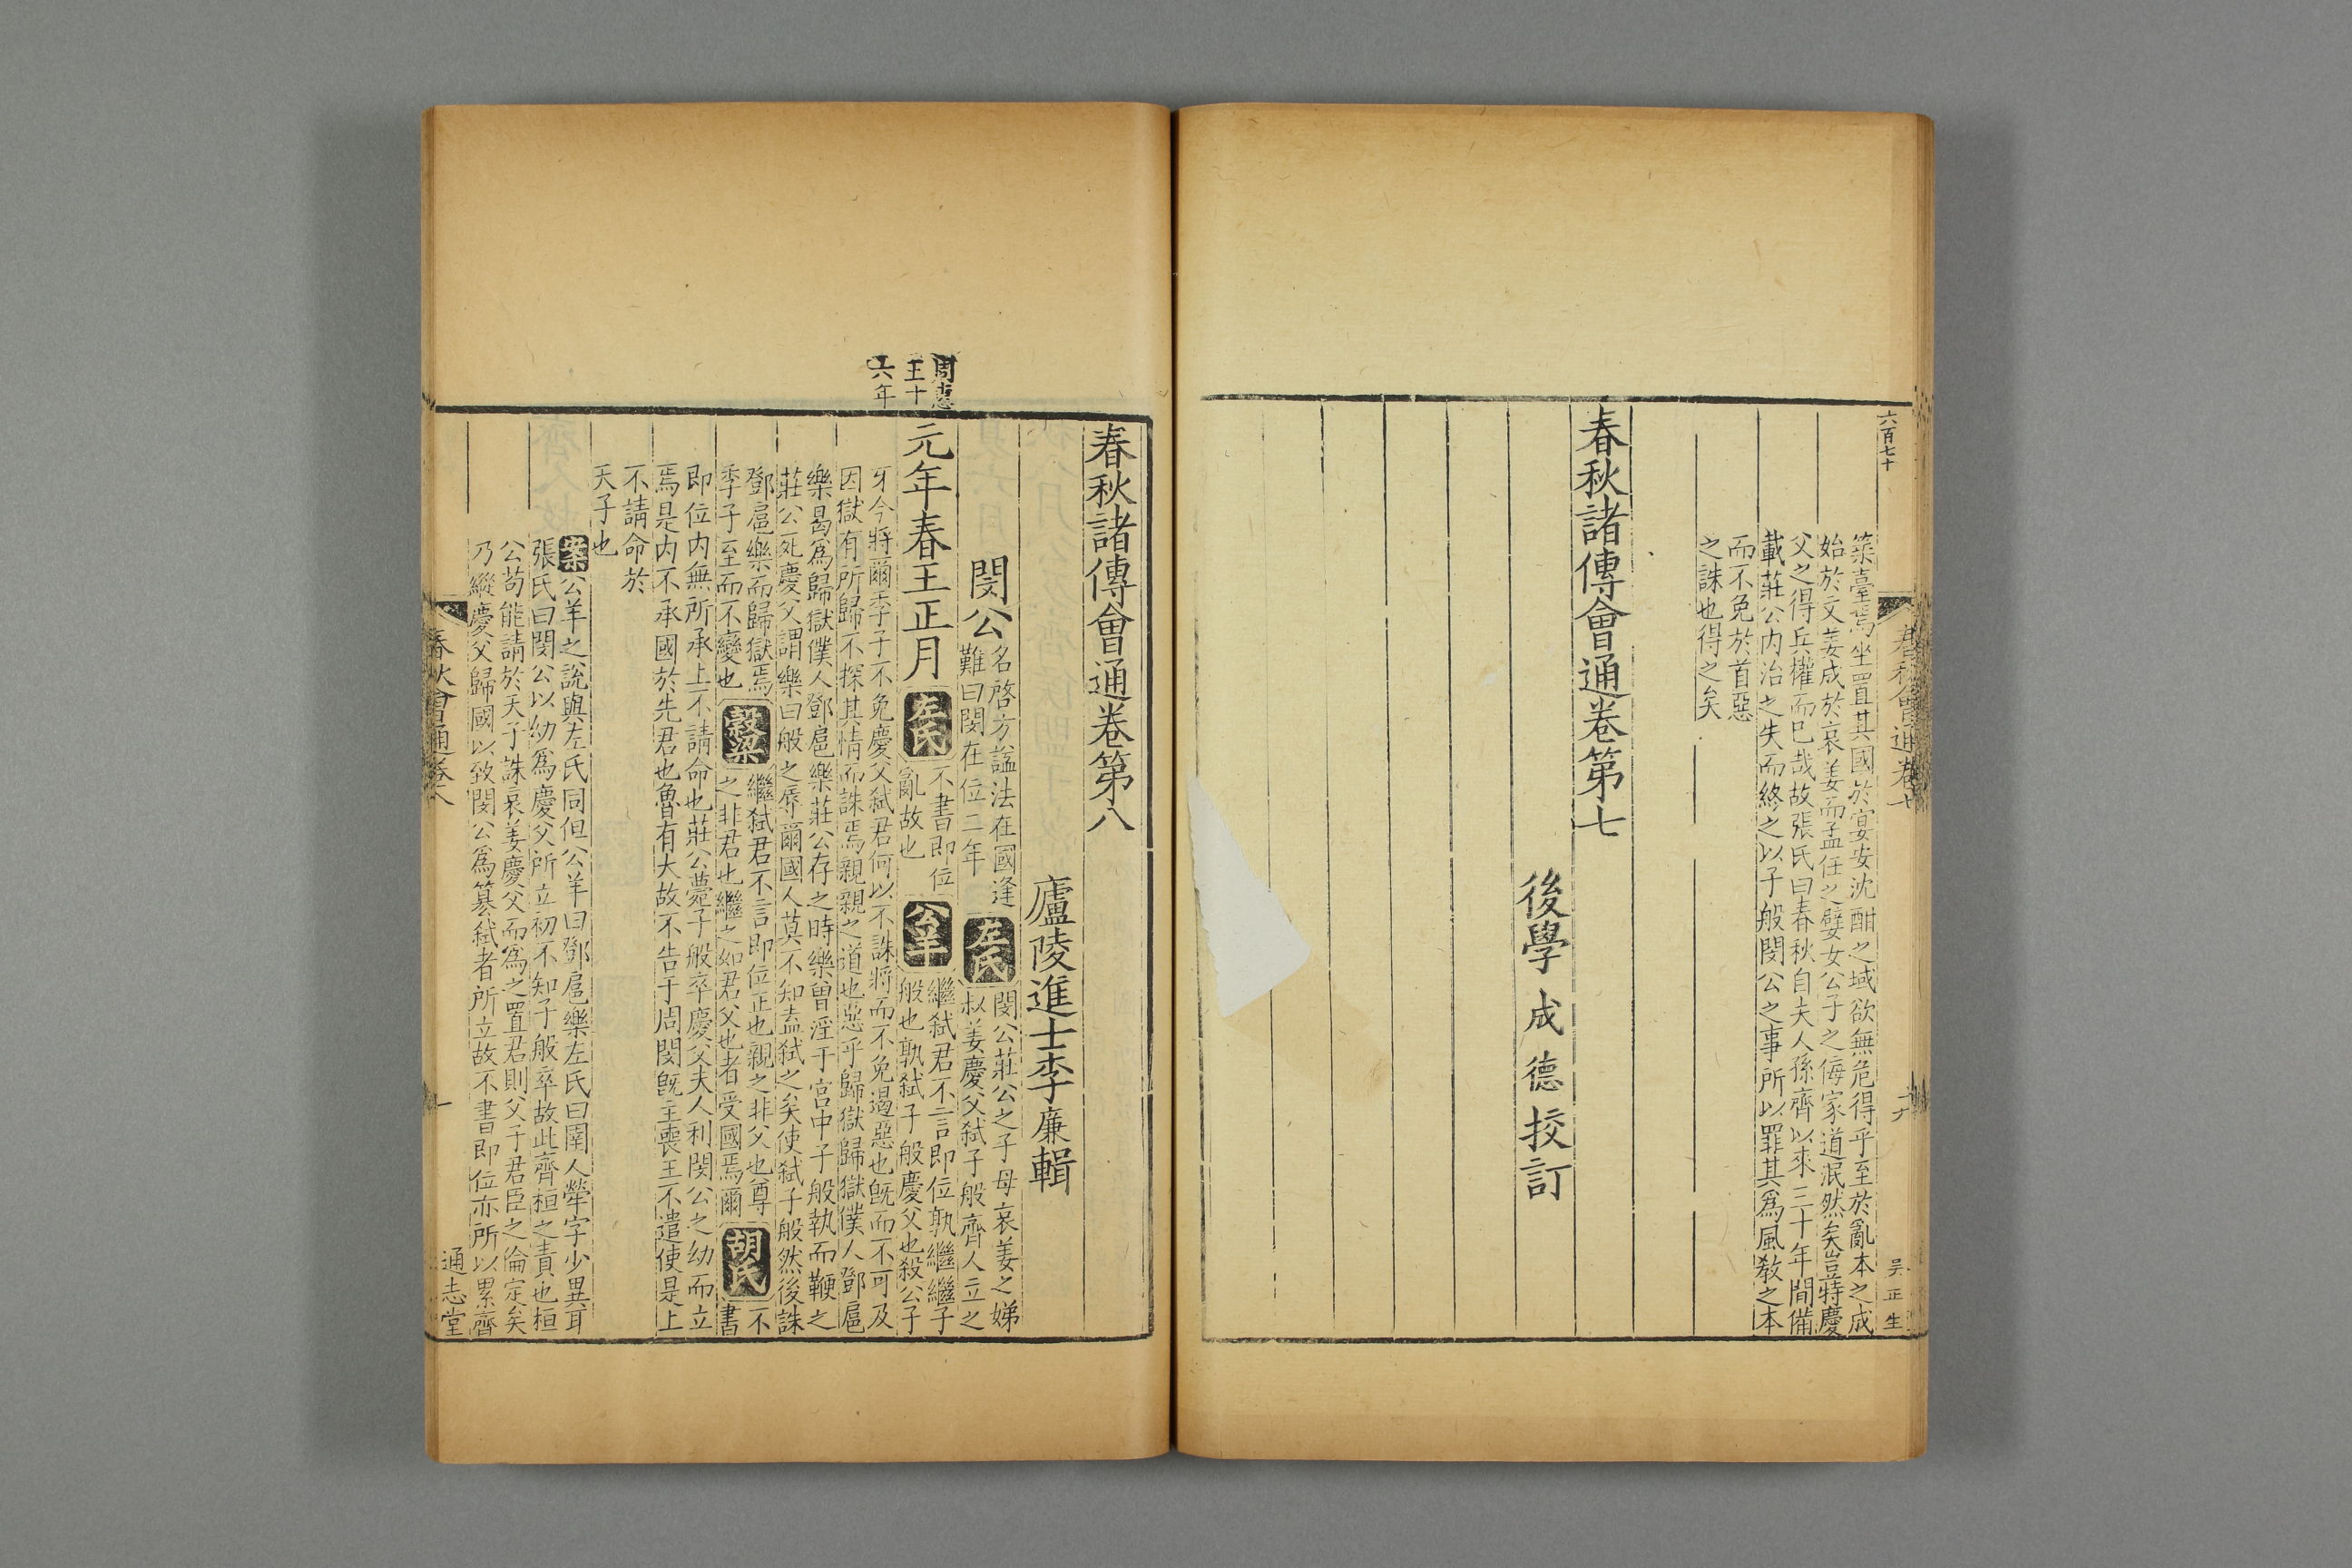 六百七十
春秋會通卷七
吴正生
築臺焉坐置其國於宴安沈酣之域欲無危得乎至於亂本之成
始於文姜成於哀姜而孟任之嬖女公子之侮家道泯然矣豈特慶
父之得兵權而已哉故張氏曰春秋自夫人孫齊以來三十年間備
載莊公内治之失而終之以子般閔公之事所以罪其爲風敎之本
而不免於首惡
之誅也得之矣
春秋諸傳會通卷第七
後學成德挍訂
春秋諸傳會通卷第八
廬陵進士李廉輯
閔公
名啓方諡法在國逢
難曰閔在位二年
左氏
閔公莊公之子母哀姜之娣
叔姜慶父弑子般齊人立之
周惠
王十
六年
元年春王正月
左氏
不書即位
亂故也
公羊
繼弑君不言即位孰繼繼子
般也孰弑子般慶父也殺公子
牙今將爾季子不免慶父弑君何以不誅將而不免遏惡也旣而不可及
因獄有所歸不探其情而誅焉親親之道也惡乎歸獄歸獄僕人鄧扈
樂曷爲歸獄僕人鄧扈樂莊公存之時樂曾淫于宫中子般執而鞭之
莊公死慶父謂樂曰般之辱爾國人莫不知盍弑之矣使弑子般然後誅
鄧扈樂而歸獄焉
季子至而不變也
穀梁
繼弑君不言即位正也親之非父也尊
之非君也繼之如君父也者受國焉爾
胡氏
不
書
即位内無所承上不請命也莊公薨子般卒慶父夫人利閔公之幼而立
焉是内不承國於先君也魯有大故不告于周閔旣主喪王不遣使是上
不請命於
天子也
案
公羊之說與左氏同但公羊曰鄧扈樂左氏曰圉人犖字少異耳
張氏曰閔公以幼爲慶父所立初不知子般卒故此齊桓之責也桓
公苟能請於天子誅哀姜慶父而爲之置君則父子君臣之倫定矣
乃縱慶父歸國以致閔公爲簒弑者所立故不書即位亦所以累齊
春秋會通卷八
一
通志堂